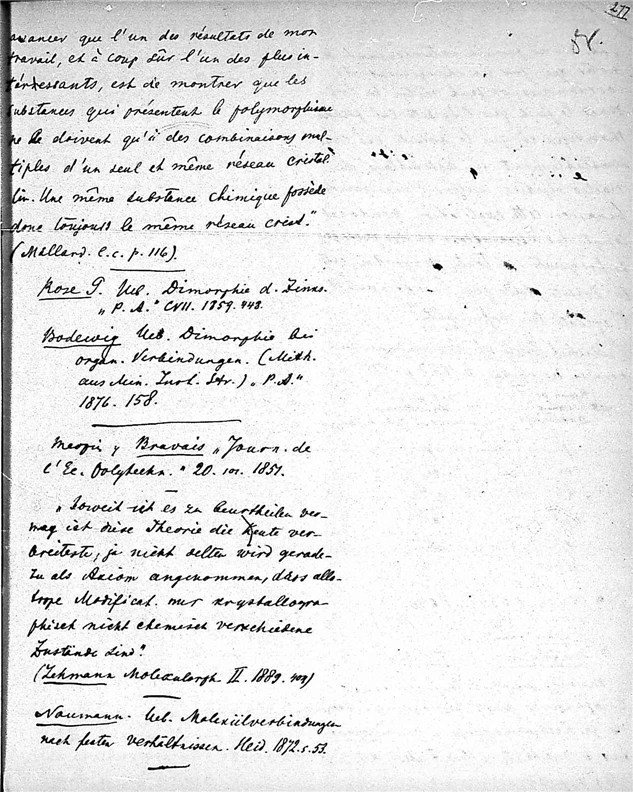 277
58.
avancer que l'un des résultats de mon
travail, et à coup sûr l'un des plus in-
téressants, est de montrer que les
substances qui présentent le polymorphisme
ne le doivent qu'à des combinaisons mul-
tiples d'un seul et même réseau cristal-
lin. Une même substance chimique possède
donc toujours le même réseau crist."
(Mallard. l.c. p. 116).
Rose G. Ueb. Dimorphie d. Zinks.
"P. A." CVII. 1859. 448.
Bodewig Ueb. Dimorphie bei
organ. Verbindungen. (Mith.
aus Min. Inst. Str.) "P. A."
1876. 158.
Bravais "Journ. de
l'Ec. Polytechn." 20. 101. 1851.
"Soweit ich es zu beurtheilen ver-
mag ist diese Theorie die heute ver-
breiteste, ja nicht selten wird gerade-
zu als Axiom angenommen, dass allo-
trope Modificat. nur krystallogra-
phisch nicht chemisch verschiedene
Zustände sind".
(Lehmann Molekularph. II. 1889. 409)
Naumann. Ueb. Molekülverbindungen
nach festen Verhältnissen. Heid. 1872. s. 53.